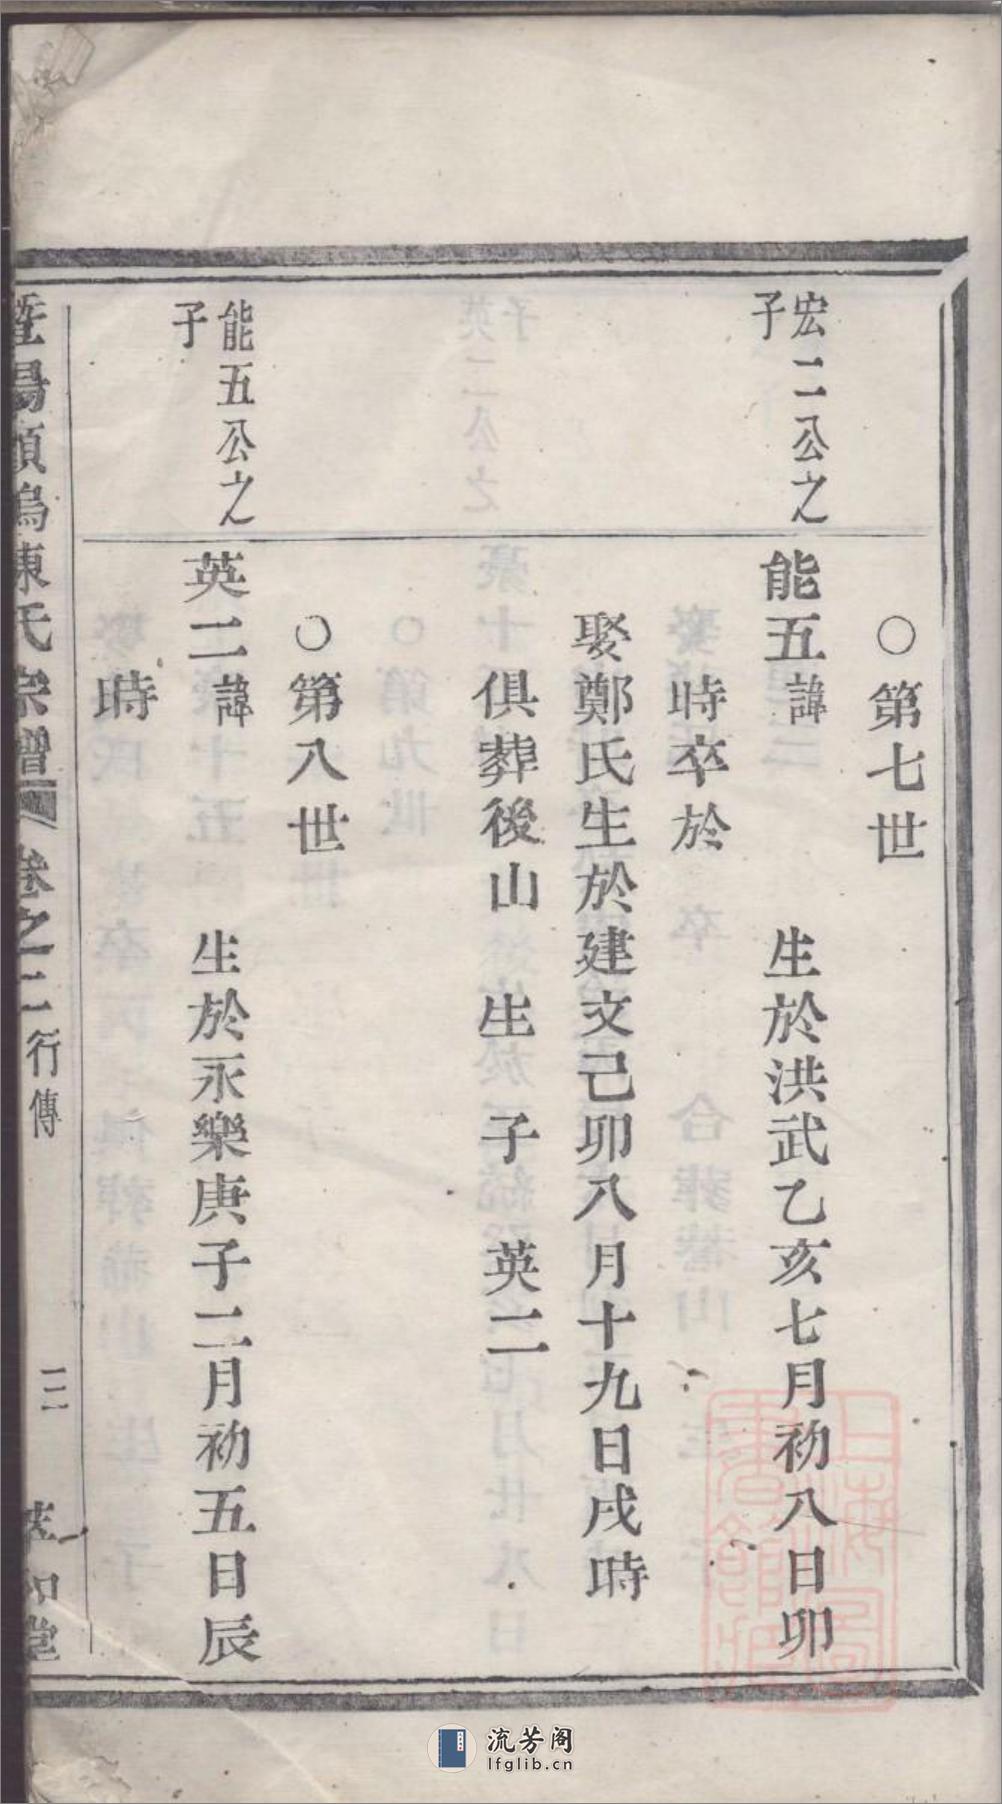 ○第七世
宏二公之
子
能五諱　生於洪武乙亥七月初八日卯
時卒於
娶鄭氏生於建文己卯八月十九日戌時
俱葬後山　生　子　英二
○第八世
能五公之
子
英二諱　生於永樂庚子二月初五日辰
時
暨陽　塢陳氏宗譜　卷之二　行傳　三　和堂
上海圖
書館藏
流芳阁
lfglib.cn